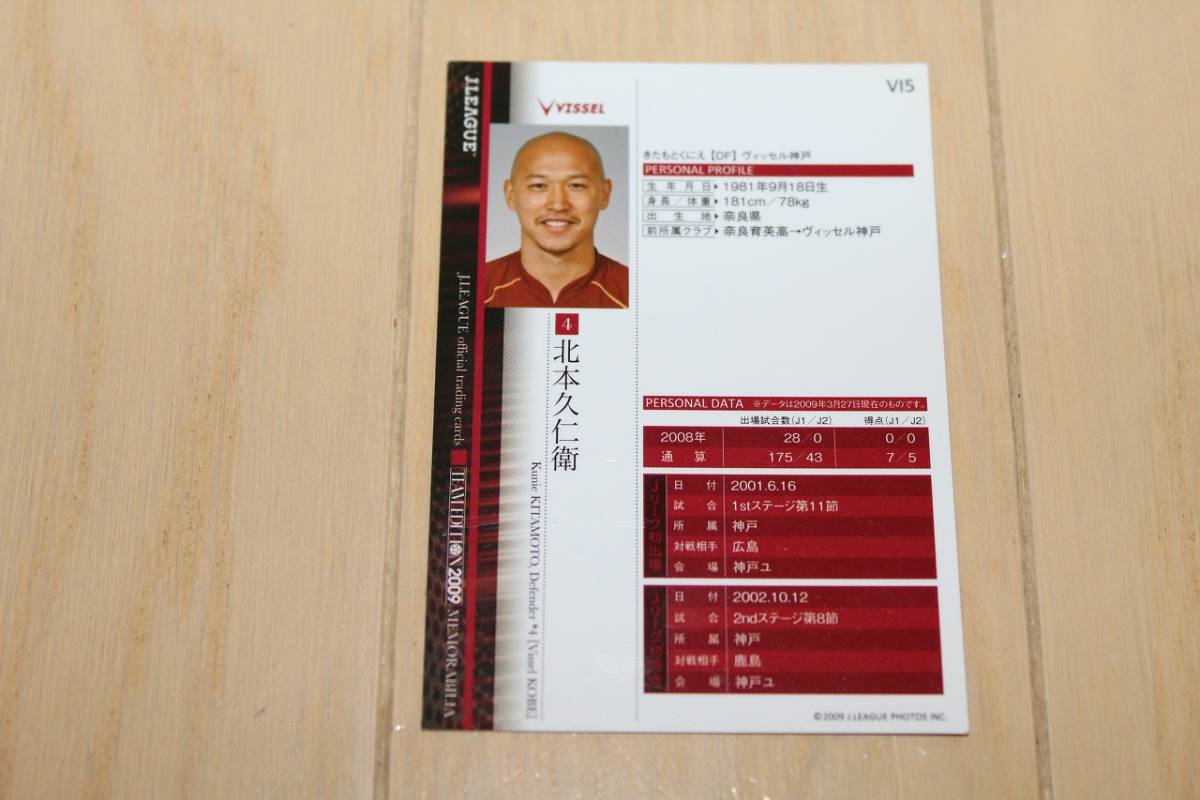 VI5
VISSEL
J.LEAGUE
きたもとくにえ【DF】ヴィッセル神戸
PERSONAL PROFILE
生年月日 1981年9月18日生
身長／体重 181cm／78kg
出生地 奈良県
前所属クラブ 奈良育英高→ヴィッセル神戸
4
北本久仁衛
Kunie KITAMOTO, Defender *4 [Vissel KOBE]
J.LEAGUE official trading cards TEAM EDITION 2009 MEMORABILIA
PERSONAL DATA ※データは2009年3月27日現在のものです。
出場試合数(J1／J2) 得点(J1／J2)
2008年 28／0 0／0
通算 175／43 7／5
Jリーグ初出場
日付 2001.6.16
試合 1stステージ第11節
所属 神戸
対戦相手 広島
会場 神戸ユ
日付 2002.10.12
試合 2ndステージ第8節
所属 神戸
対戦相手 鹿島
会場 神戸ユ
©2009 J.LEAGUE PHOTOS INC.